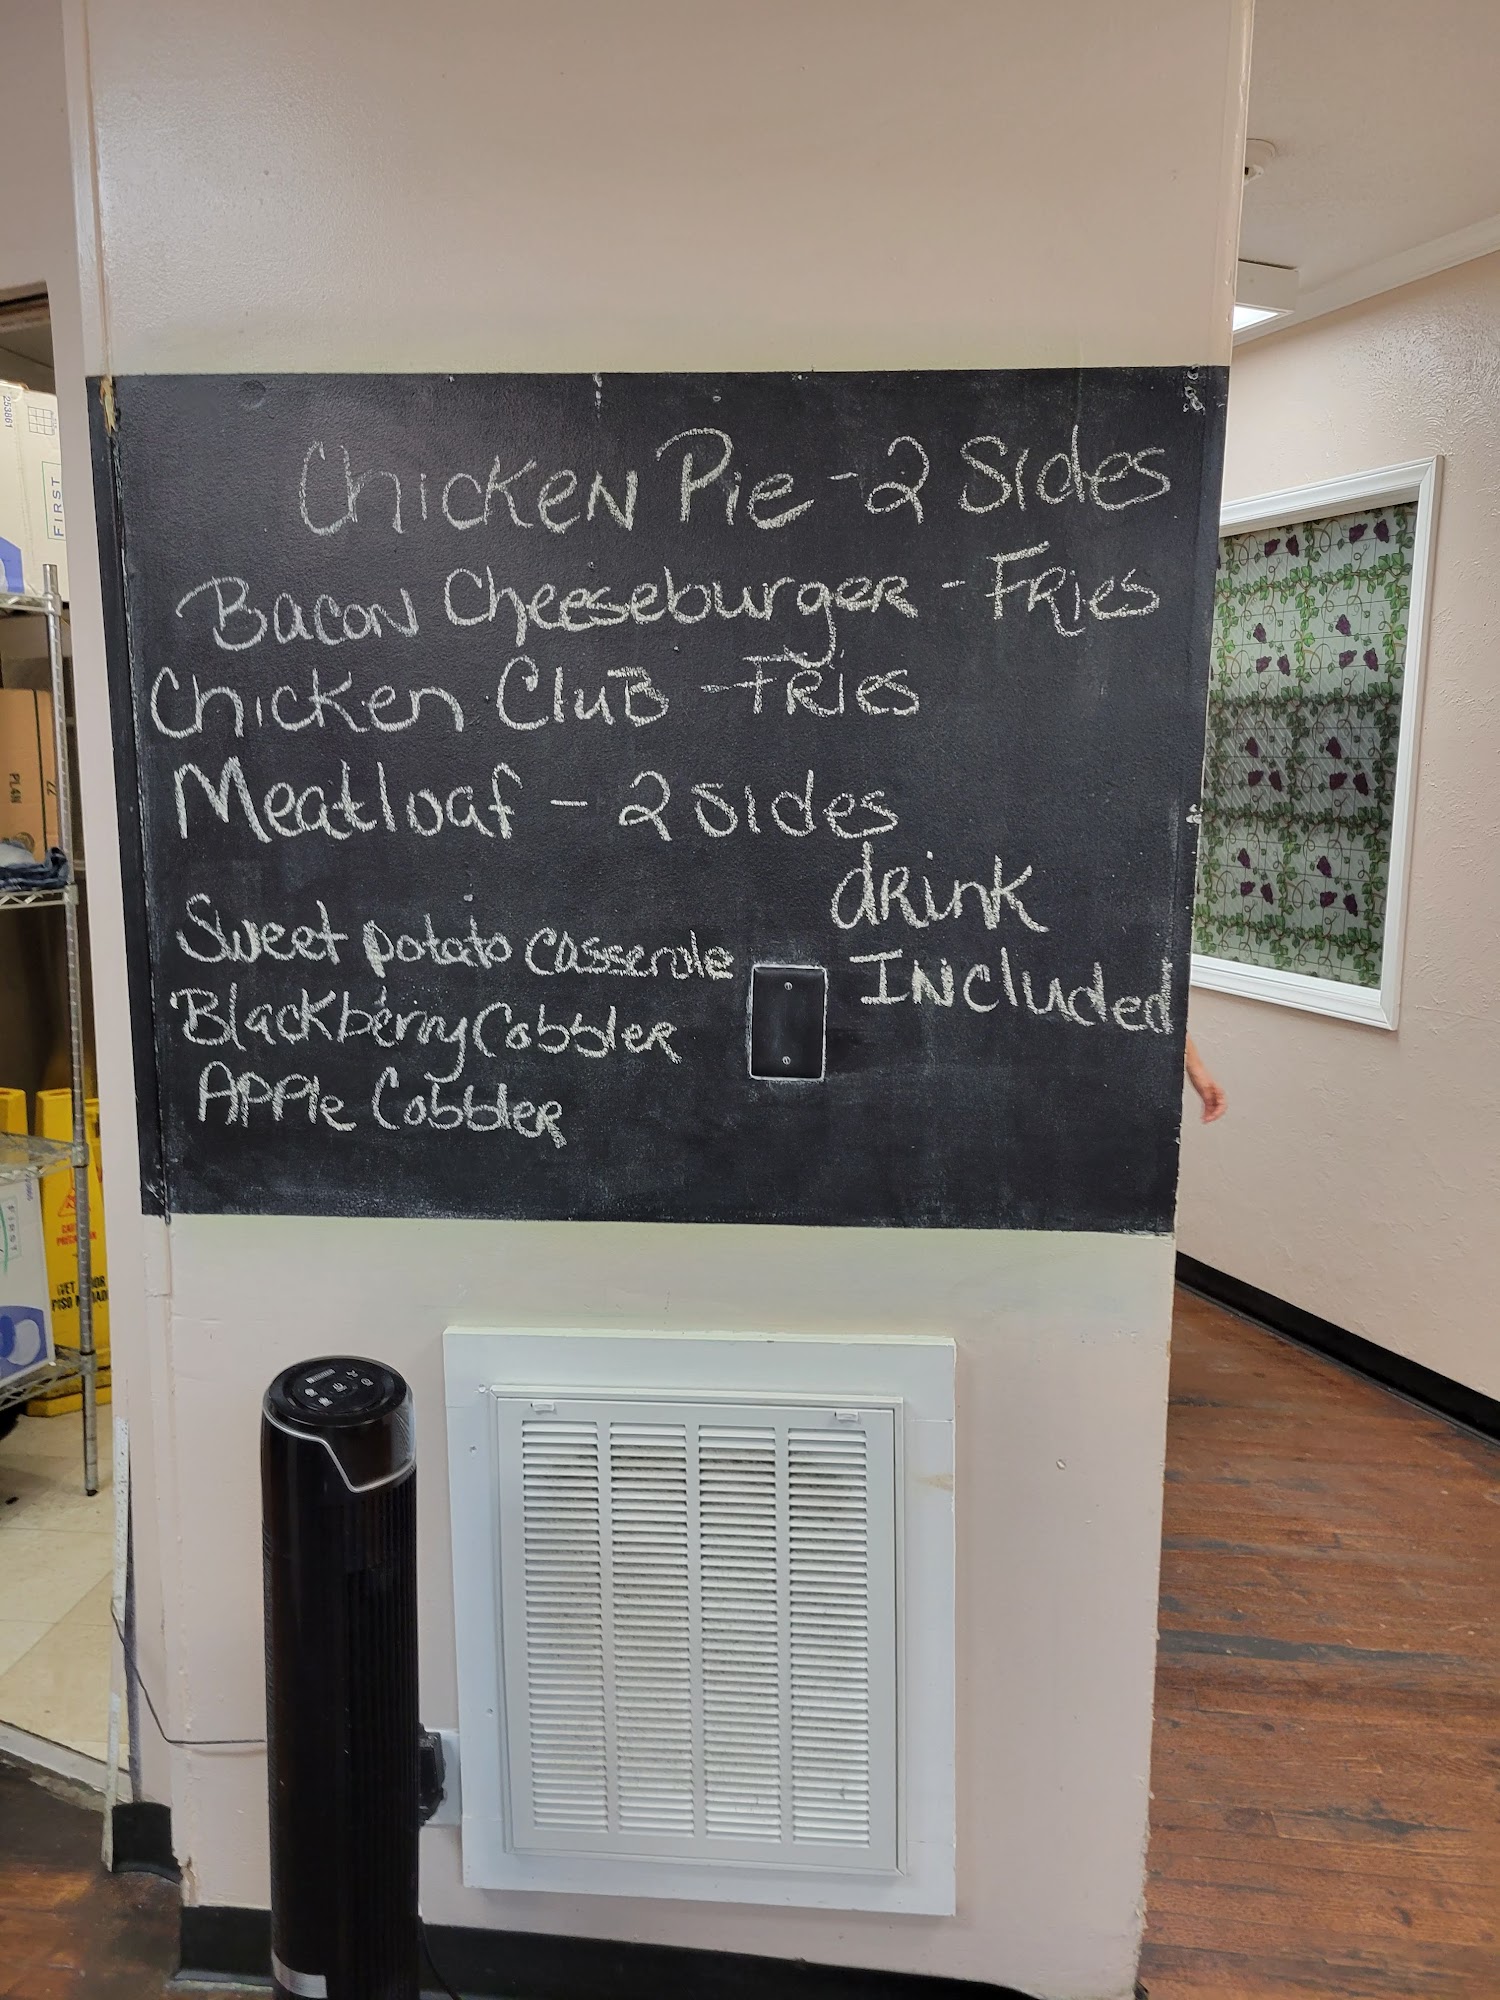 Chicken Pie - 2 Sides
Bacon Cheeseburger - Fries
Chicken Club - Fries
Meatloaf - 2 sides
drink
Included
Sweet potato Casserole
Blackberry Cobbler
Apple Cobbler
253861
FIRST
PL4N
FIRST